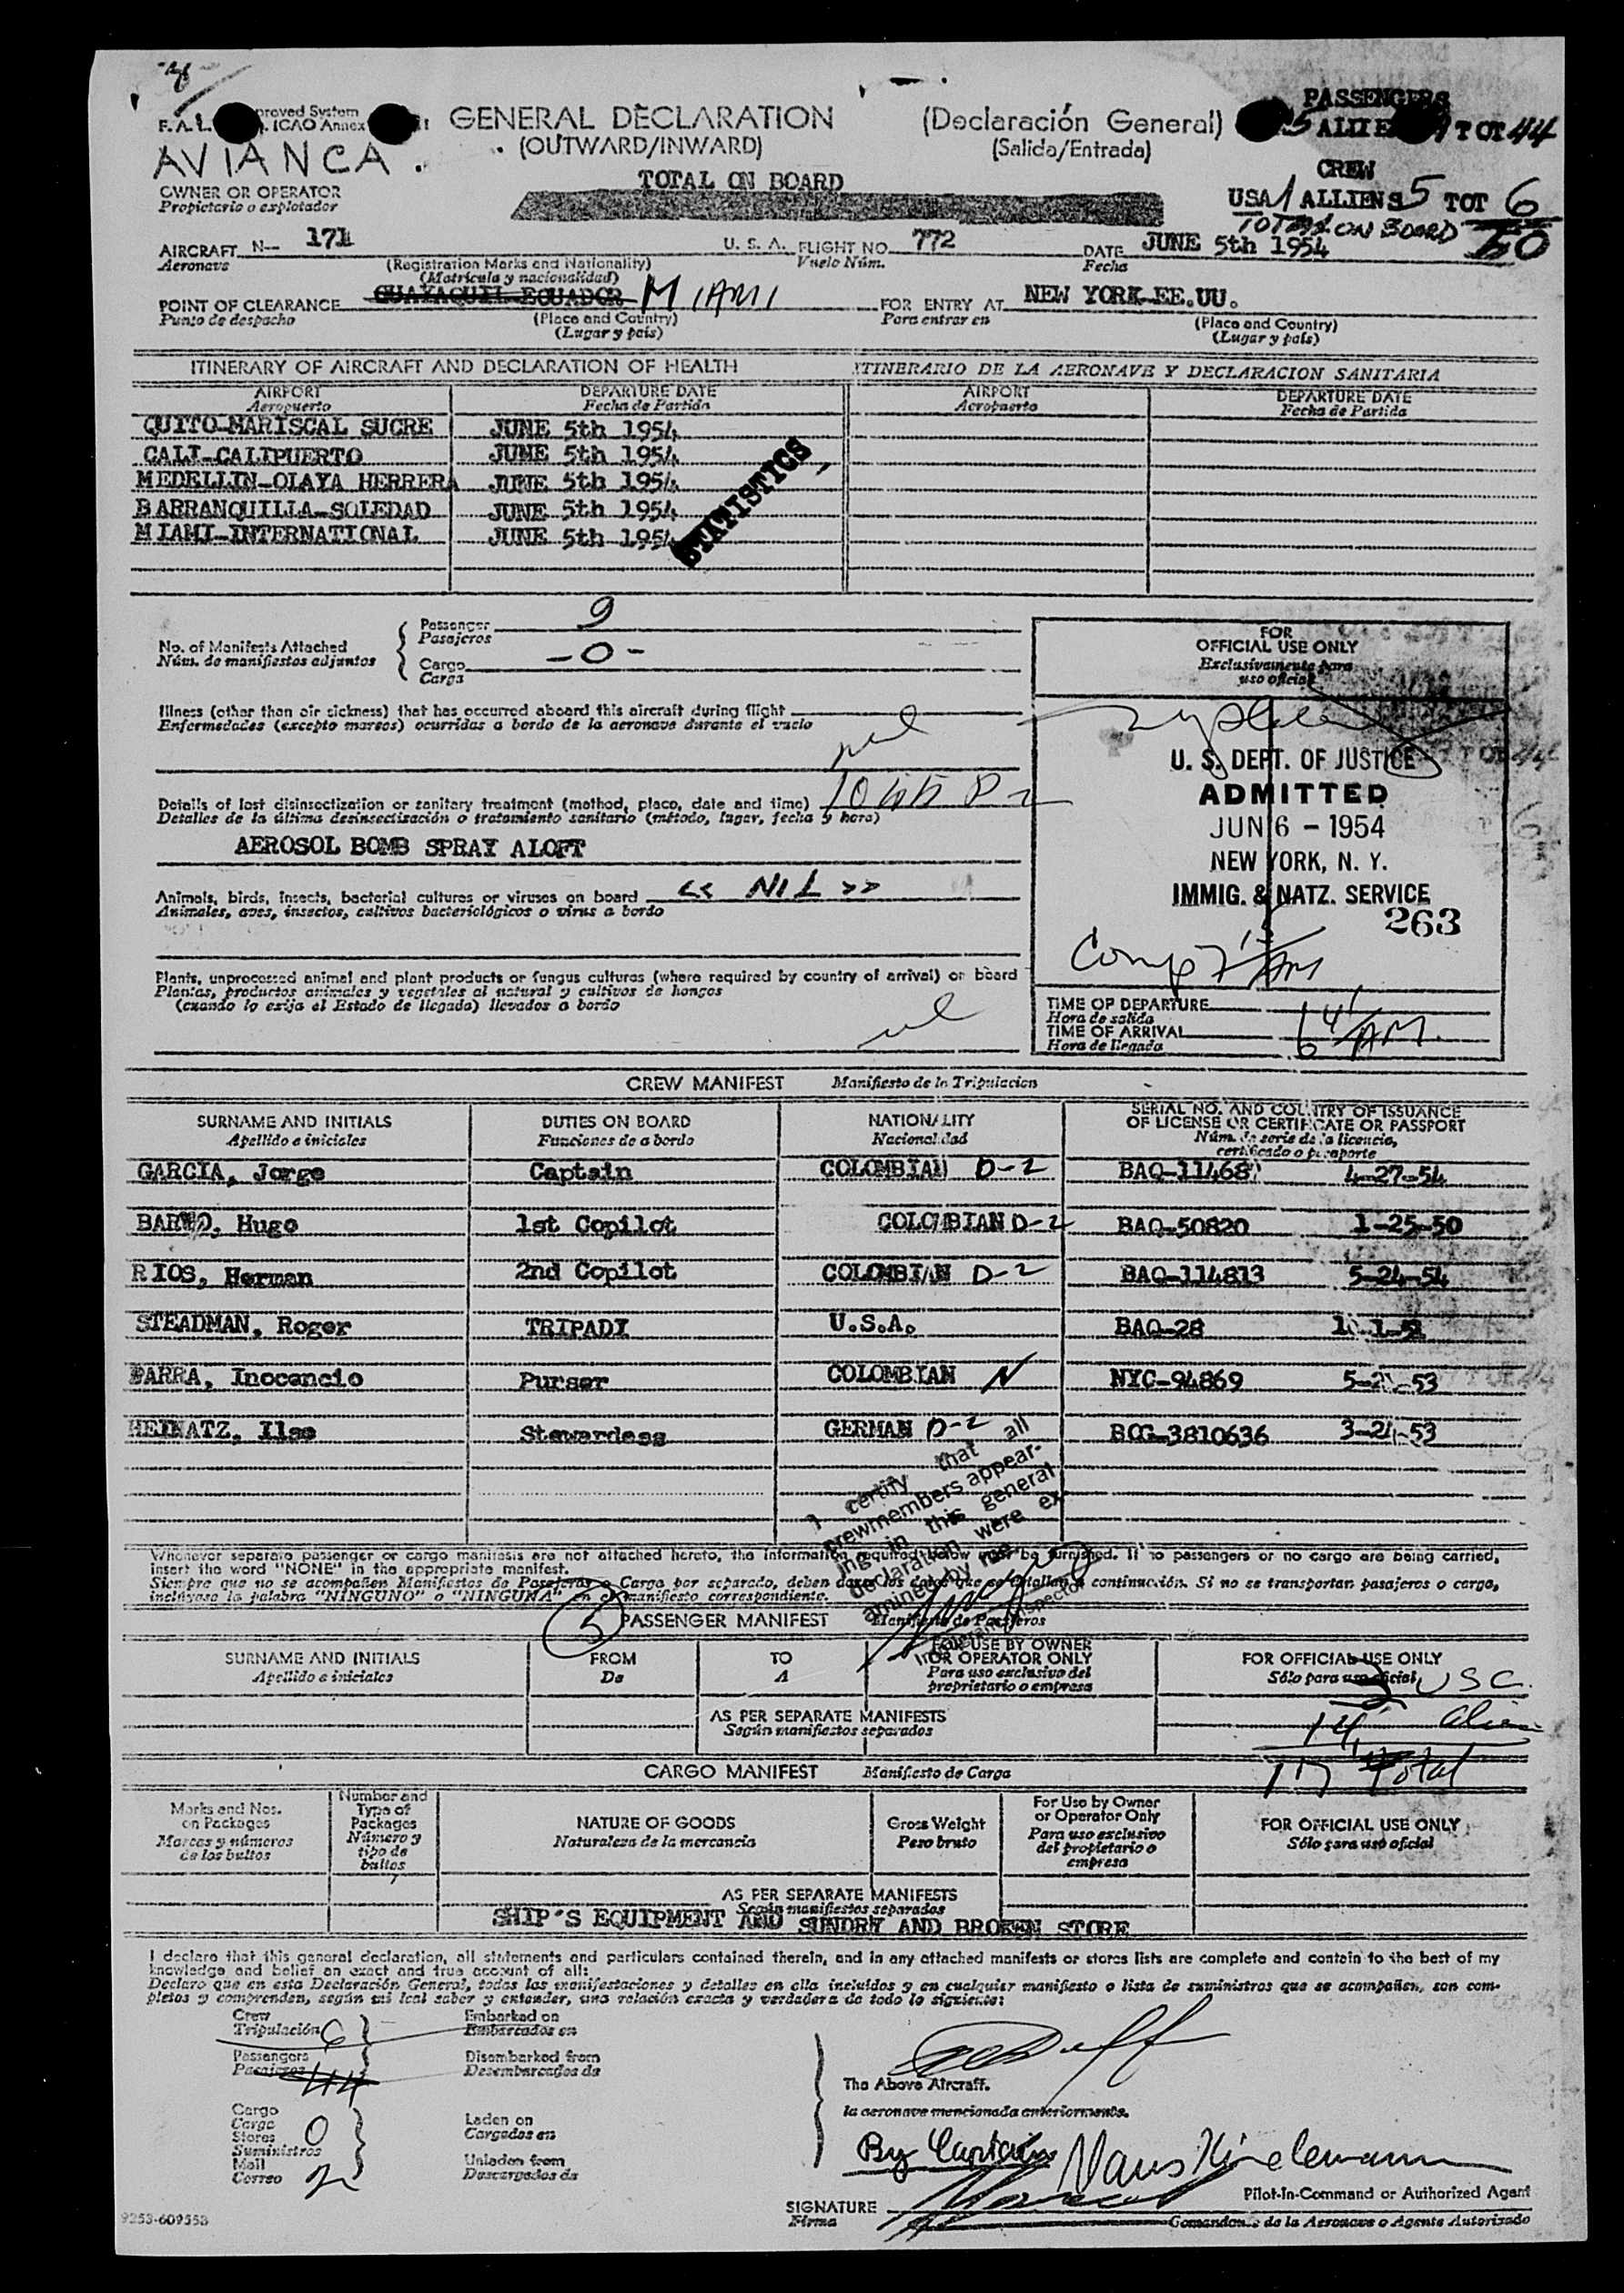 F.A.L.
proved System
ICAO Annex
GENERAL DECLARATION
(OUTWARD/INWARD)
(Declaración General)
(Salida/Entrada)
PASSENGERS
TOT 44
AVIANCA.
OWNER OR OPERATOR
Propietario o explotador
TOTAL ON BOARD
CREW
USA 1 ALLIENS 5 TOT 6
TOTAL ON BOARD 50
AIRCRAFT N-- 171
Aeronave
(Registration Marks and Nationality)
(Matrícula y nacionalidad)
U. S. A. FLIGHT NO. 772
Vuelo Núm.
DATE JUNE 5th 1954
Fecha
POINT OF CLEARANCE GUAYAQUIL-ECUADOR MIAMI
Punto de despacho
(Place and Country)
(Lugar y país)
FOR ENTRY AT NEW YORK-EE.UU.
Para entrar en
(Place and Country)
(Lugar y país)
ITINERARY OF AIRCRAFT AND DECLARATION OF HEALTH
ITINERARIO DE LA AERONAVE Y DECLARACION SANITARIA
AIRPORT DEPARTURE DATE AIRPORT DEPARTURE DATE
Aeropuerto Fecha de Partida Aeropuerto Fecha de Partida
QUITO-MARISCAL SUCRE JUNE 5th 1954
CALI-CALIPUERTO JUNE 5th 1954
MEDELLIN-OLAYA HERRERA JUNE 5th 1954
BARRANQUILLA-SOLEDAD JUNE 5th 1954
MIAMI-INTERNATIONAL JUNE 5th 1954
STATISTICS
No. of Manifests Attached
Núm. de manifiestos adjuntos
Passenger 9
Pasajeros
Cargo -0-
Carga
Illness (other than air sickness) that has occurred aboard this aircraft during flight
Enfermedades (excepto mareos) ocurridas a bordo de la aeronave durante el vuelo
nil
Details of last disinsectization or sanitary treatment (method, place, date and time)
Detalles de la última desinsectización o tratamiento sanitario (método, lugar, fecha y hora)
AEROSOL BOMB SPRAY ALOFT
Animals, birds, insects, bacterial cultures or viruses on board << NIL >>
Animales, aves, insectos, cultivos bacteriológicos o virus a bordo
Plants, unprocessed animal and plant products or fungus cultures (where required by country of arrival) on board
Plantas, productos animales y vegetales al natural y cultivos de hongos
(cuando lo exija el Estado de llegada) llevados a bordo
nil
FOR
OFFICIAL USE ONLY
Exclusivamente para
uso oficial
U. S. DEPT. OF JUSTICE
ADMITTED
JUN 6 - 1954
NEW YORK, N. Y.
IMMIG. & NATZ. SERVICE
263
TIME OF DEPARTURE
Hora de salida
TIME OF ARRIVAL
Hora de llegada
CREW MANIFEST Manifiesto de la Tripulacion
SURNAME AND INITIALS DUTIES ON BOARD NATIONALITY
Apellido e iniciales Funciones de a bordo Nacionalidad
SERIAL NO. AND COUNTRY OF ISSUANCE
OF LICENSE OR CERTIFICATE OR PASSPORT
Núm. de serie de la licencia,
certificado o pasaporte
GARCIA, Jorge Captain COLOMBIAN D-2 BAQ-11468 4-27-54
Hugo 1st Copilot COLOMBIAN D-2 BAQ-50820 1-25-50
RIOS, Herman 2nd Copilot COLOMBIAN D-2 BAQ-114813 5-24-54
STEADMAN, Roger TRIPADI U.S.A. BAQ-28
PARRA, Inocencio Purser COLOMBIAN N NYC-94869
HEINATZ, Ilse Stewardess GERMAN D-2 BOG-3810636 3-24-53
I certify that all
crewmembers appear-
ing in this general
declaration were ex-
amined by me.
Immigrant Inspector
Whenever separate passenger or cargo manifests are not attached hereto, the information required below must be furnished. If no passengers or no cargo are being carried,
insert the word "NONE" in the appropriate manifest.
Siempre que no se acompañen Manifiestos de Pasajeros o Carga por separado, deben darse los datos que se detallan a continuación. Si no se transportan pasajeros o carga,
inclúyase la palabra "NINGUNO" o "NINGUNA" en el manifiesto correspondiente.
PASSENGER MANIFEST Manifiesto de Pasajeros
SURNAME AND INITIALS FROM TO
Apellido e iniciales De A
FOR USE BY OWNER
OR OPERATOR ONLY
Para uso exclusivo del
proprietario o empresa
FOR OFFICIAL USE ONLY
Sólo para uso oficial
USC.
AS PER SEPARATE MANIFESTS
Según manifiestos separados
14 alien
17 Total
CARGO MANIFEST Manifiesto de Carga
Marks and Nos.
on Packages
Marcas y números
de los bultos
Number and
Type of
Packages
Número y
tipo de
bultos
NATURE OF GOODS
Naturalesa de la mercancia
Gross Weight
Peso bruto
For Use by Owner
or Operator Only
Para uso exclusivo
del propietario o
empresa
FOR OFFICIAL USE ONLY
Sólo para uso oficial
AS PER SEPARATE MANIFESTS
Según manifiestos separados
SHIP'S EQUIPMENT AND SUNDRY AND BROKEN STORE
I declare that this general declaration, all statements and particulars contained therein, and in any attached manifests or stores lists are complete and contain to the best of my
knowledge and belief an exact and true account of all:
Declaro que en esta Declaración General, todas las manifestaciones y detalles en ella incluídos y en cualquier manifiesto o lista de suministros que se acompañen, son com-
pletos y comprenden, según mi leal saber y entender, una relación exacta y verdadera de todo lo siguiente:
Crew
Tripulación 6
Embarked on
Embarcados en
Passengers
Pasajeros 44
Disembarked from
Desembarcados de
Cargo
Carga
Stores
Suministros
0
Mail
Correo
Laden on
Cargados en
Unladen from
Descargados de
The Above Aircraft.
la aeronave mencionada anteriormente.
By Captain
Pilot-In-Command or Authorized Agent
SIGNATURE
Firma
Comandante de la Aeronave o Agente Autorizado
9253-609553